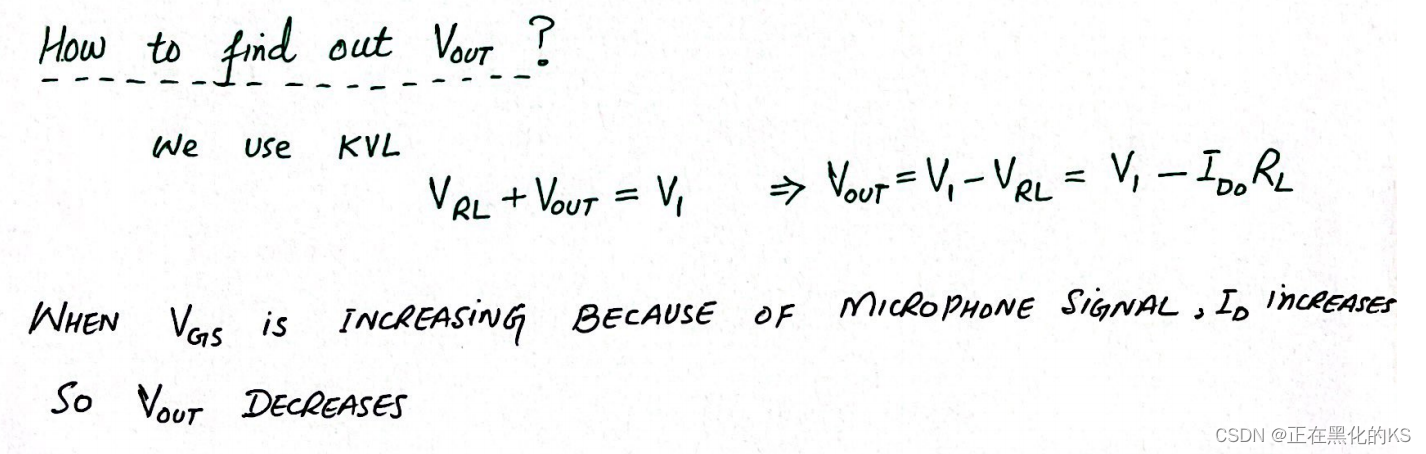 How to find out VOUT ?
We use KVL
VRL + VOUT = V1 ⇒ VOUT = V1 - VRL = V1 - IDO RL
WHEN VGS is INCREASING BECAUSE OF MICROPHONE SIGNAL, ID INCREASES
So VOUT DECREASES
CSDN @正在黑化的KS